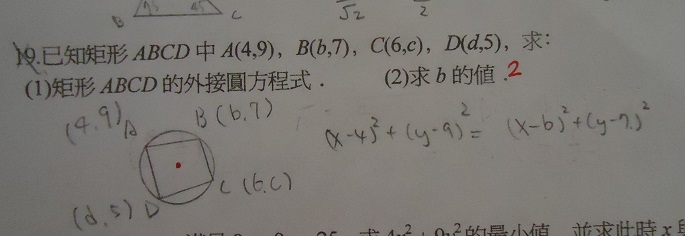 B 45 45 C
√2 2
19.已知矩形 ABCD 中 A(4,9)，B(b,7)，C(6,c)，D(d,5)，求：
(1)矩形 ABCD 的外接圓方程式． (2)求 b 的值．2
(4,9) A B (b,7)
(x-4)²+(y-9)²= (x-b)²+(y-7)²
C (6,c)
(d,5) D
的最小值，並求此時 x